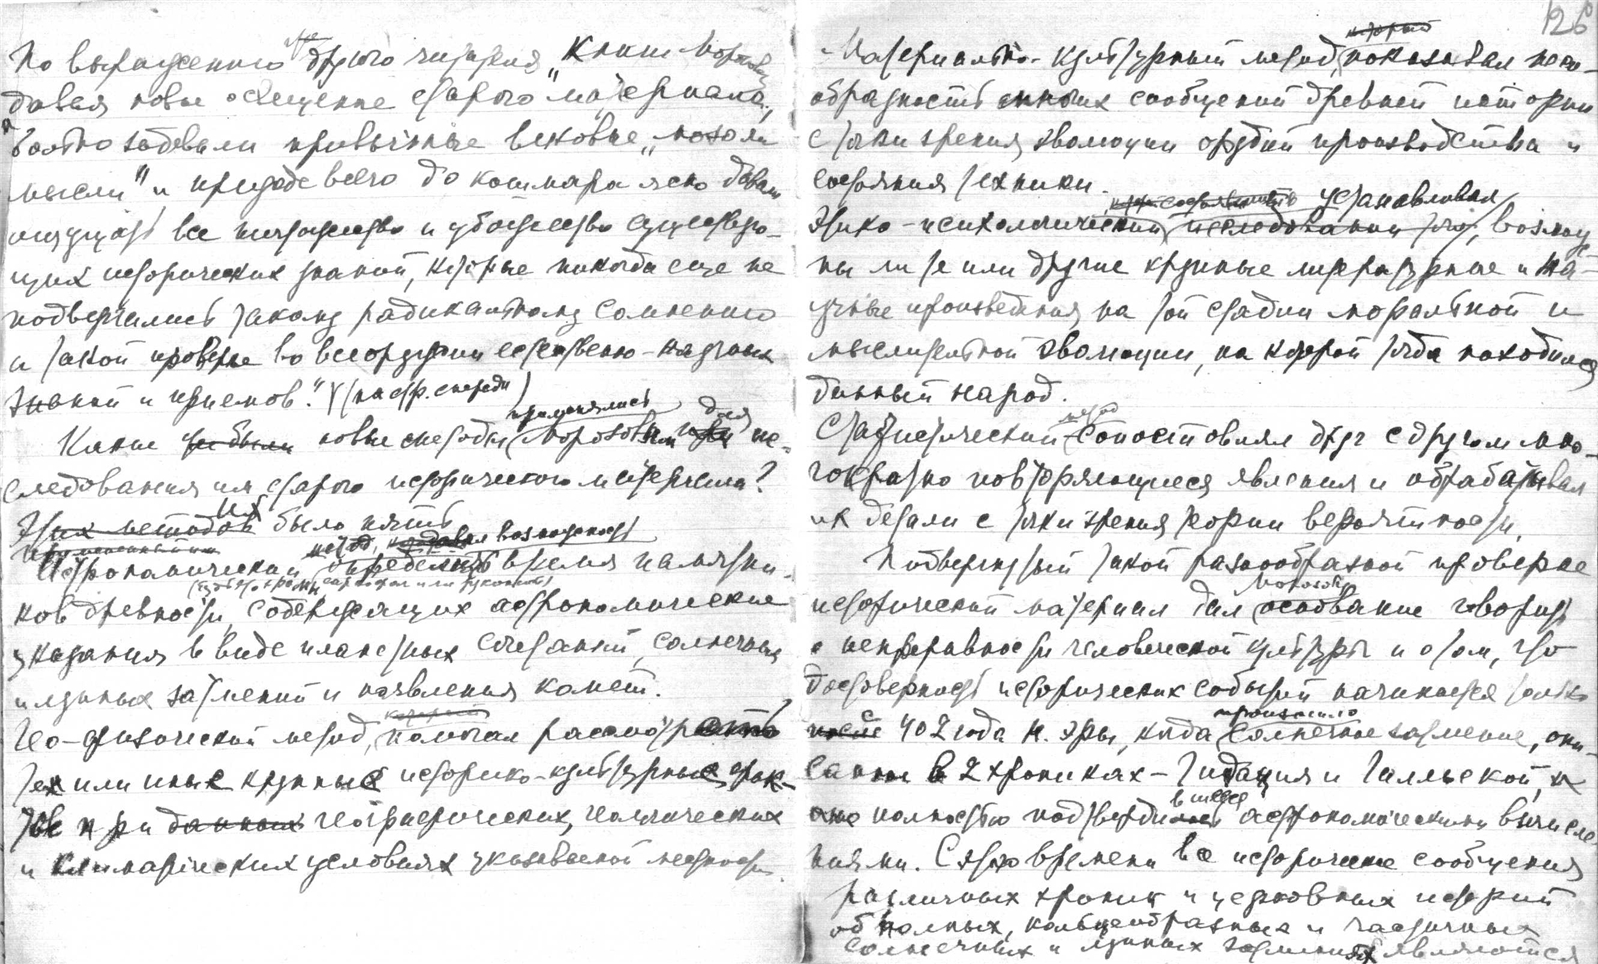 По выражению же другого читателя "Книги Морозова
давая новые освещение старого материала,
больно задевали привычные вековые "мозоли
мысли" и прежде всего до кошмара ясно давали
ощущать все ничтожество и убожество существую-
щих исторических знаний, которые никогда еще не
подвергались такому радикальному сомнению
и такой проверке во всеоружии естественно-научных
знаний и приемов". (на стр. спереди)
Какие же были новые методы применялись Морозовым для ис-
следования им старого исторического материала?
Этих методов Их было пять
Астрономический метод, давал возможность определить время памятни-
ков древности, содержащих астрономические
указания в виде планетных сочетаний, солнечных
и лунных затмений и появления комет.
Гео-физический метод, который помогал рассмотреть
тех или иные крупные историко-культурные фак-
торы при данных географических, геологических
и климатических условиях указываемой местности.
126
Материально-культурный метод, который показывал несо-
образность многих сообщений древней истории
с точки зрения эволюции орудий производства и
состояния техники.
Этико-психологический устанавливал, возмож-
ны ли те или другие крупные литературные и на-
учные произведения на той стадии моральной и
мыслительной эволюции, на которой тогда находился
данный народ.
Статистический метод сопоставлял друг с другом мно-
гократно повторяющиеся явления и обрабатывал
их детали с точки зрения теории вероятности.
Подвергнутый такой разнообразной проверке
исторический материал дал Морозову основание говорить
о непрерывности человеческой культуры и о том, что
достоверность исторических событий начинается только
после с 402 года н. эры, когда произошло солнечное затмение, опи-
санное в 2 хрониках – Гидация и Галльской, и
оно полностью подтвердилось астрономическими вычисле-
ниями. С этого времени все исторические сообщения
различных хроник и церковных историй
об полных, кольцеобразных и частичных
солнечных и лунных затмениях являются